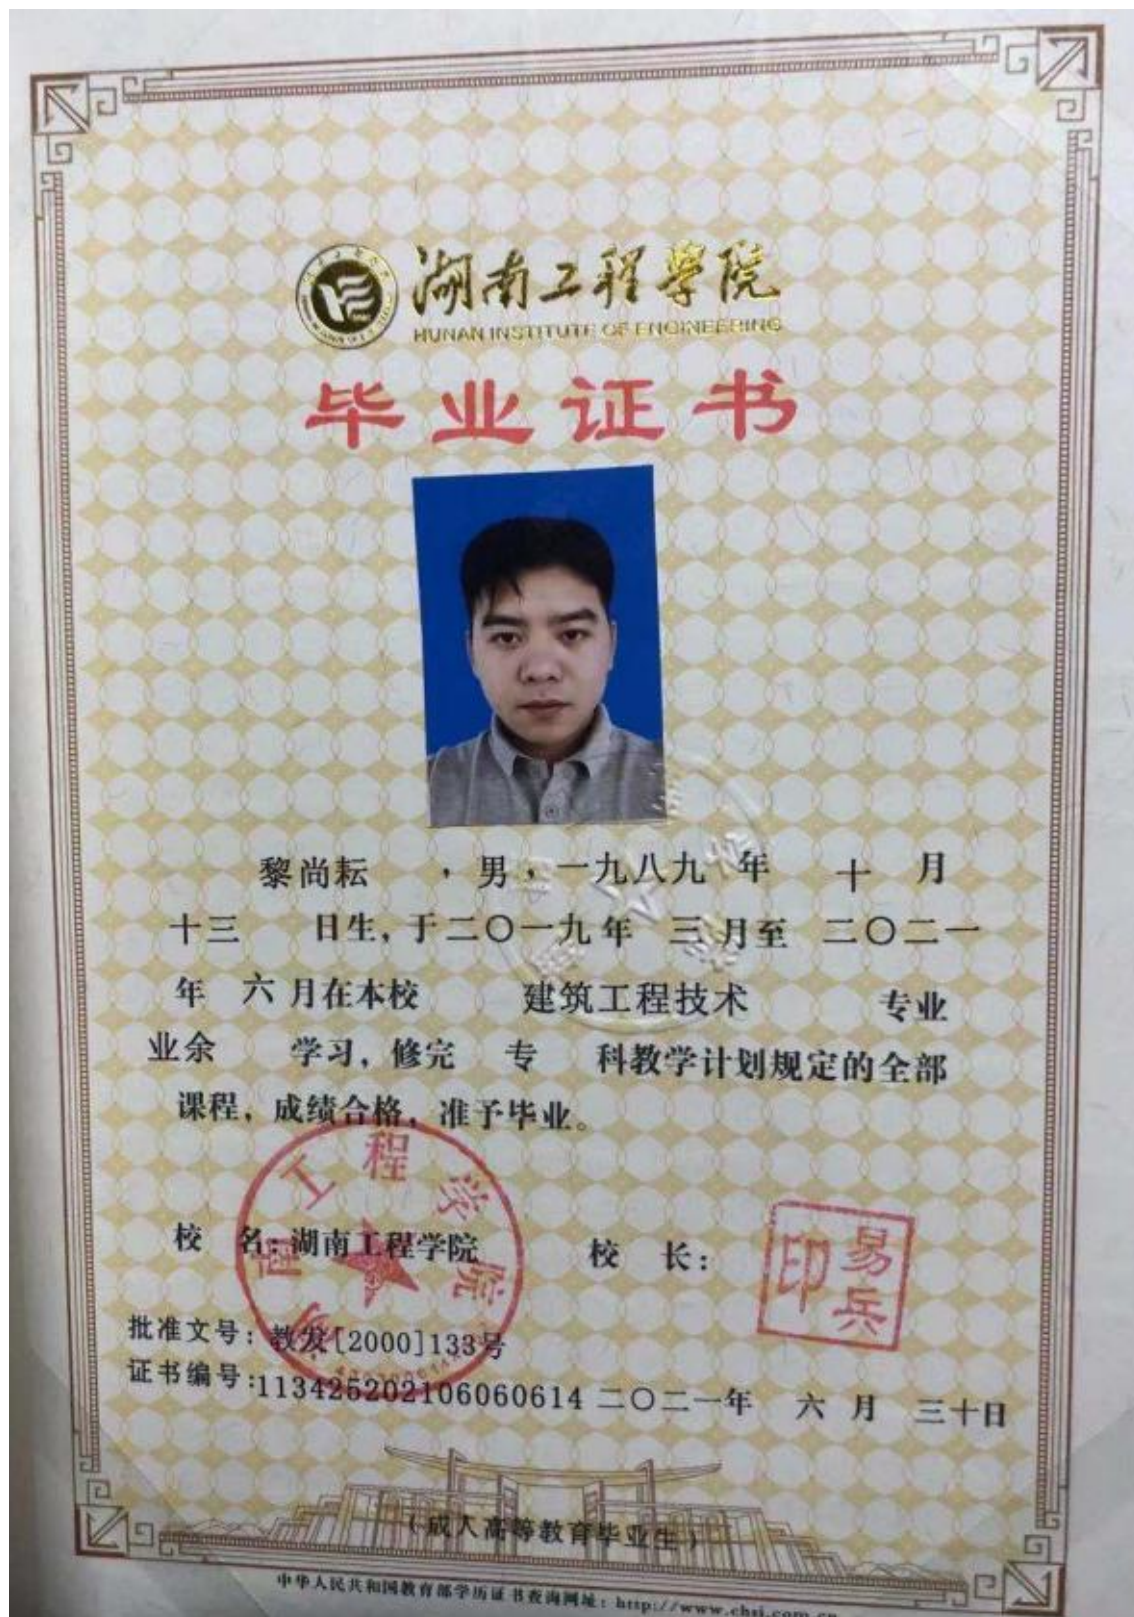 湖南工程学院
HUNAN INSTITUTE OF ENGINEERING
毕业证书
黎尚耘 ,男,一九八九 年 十 月
十三 日生,于二〇一九年 三 月至 二〇二一
年 六 月在本校 建筑工程技术 专业
业余 学习,修完 专 科教学计划规定的全部
课程,成绩合格,准予毕业。
工程学院
校 名:湖南工程学院 校 长:
易兵印
批准文号:教发[2000]133号
证书编号:113425202106060614 二〇二一年 六 月 三十日
(成人高等教育毕业生)
中华人民共和国教育部学历证书查询网址:http://www.chsi.com.cn